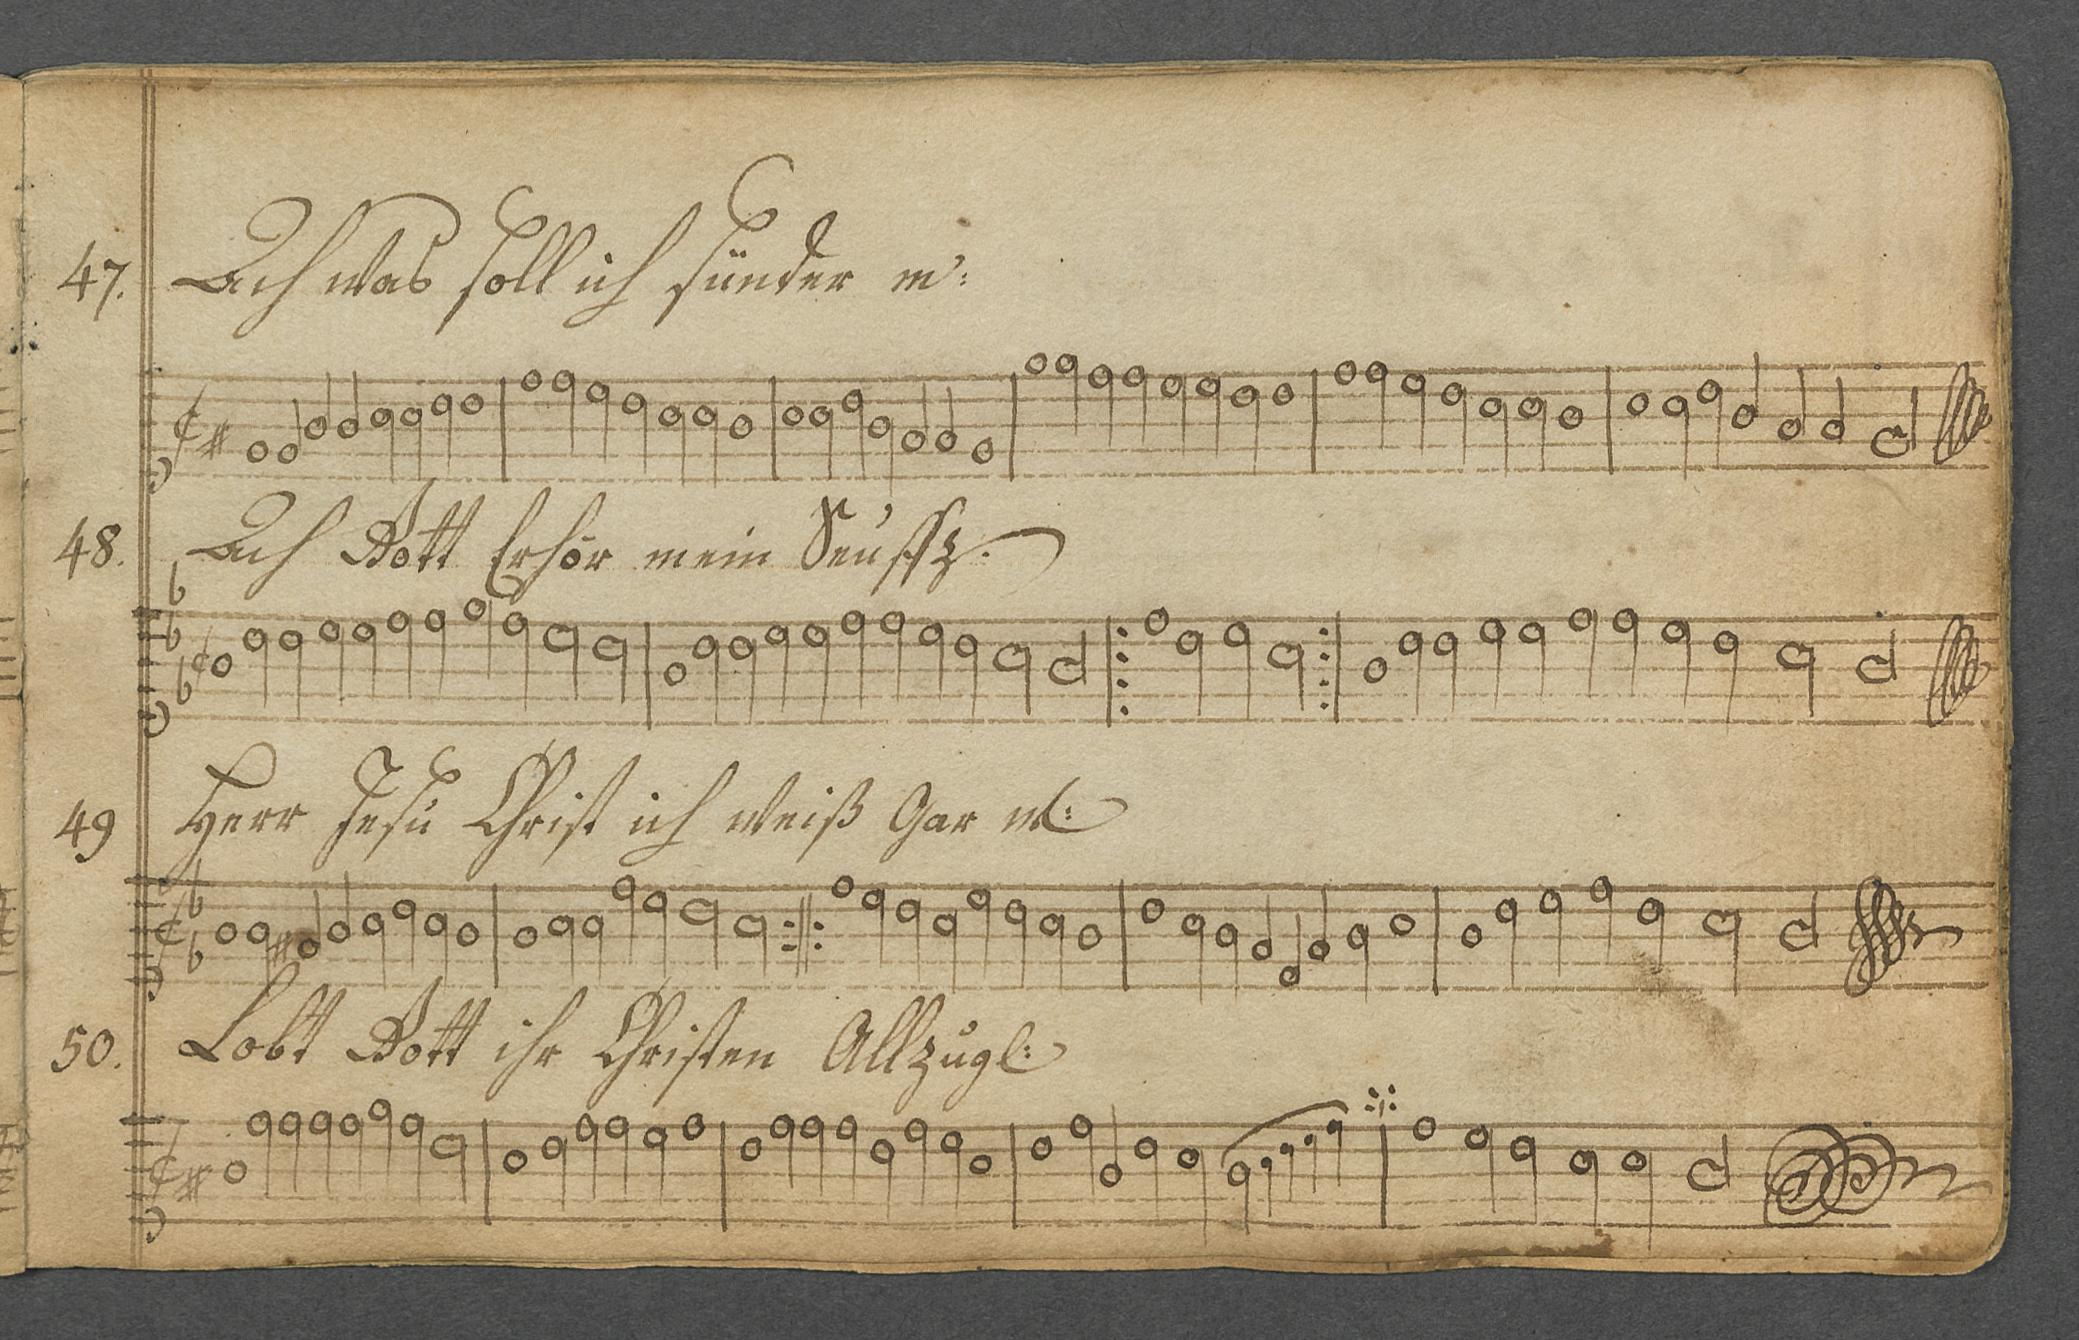 47. Ach was soll ich sünder m:
48. Ach Gott Erhör mein Seufftz.
49 Herr Jesu Christ ich weiß Gar w:
50. Lobt Gott ihr Christen Allzugl: